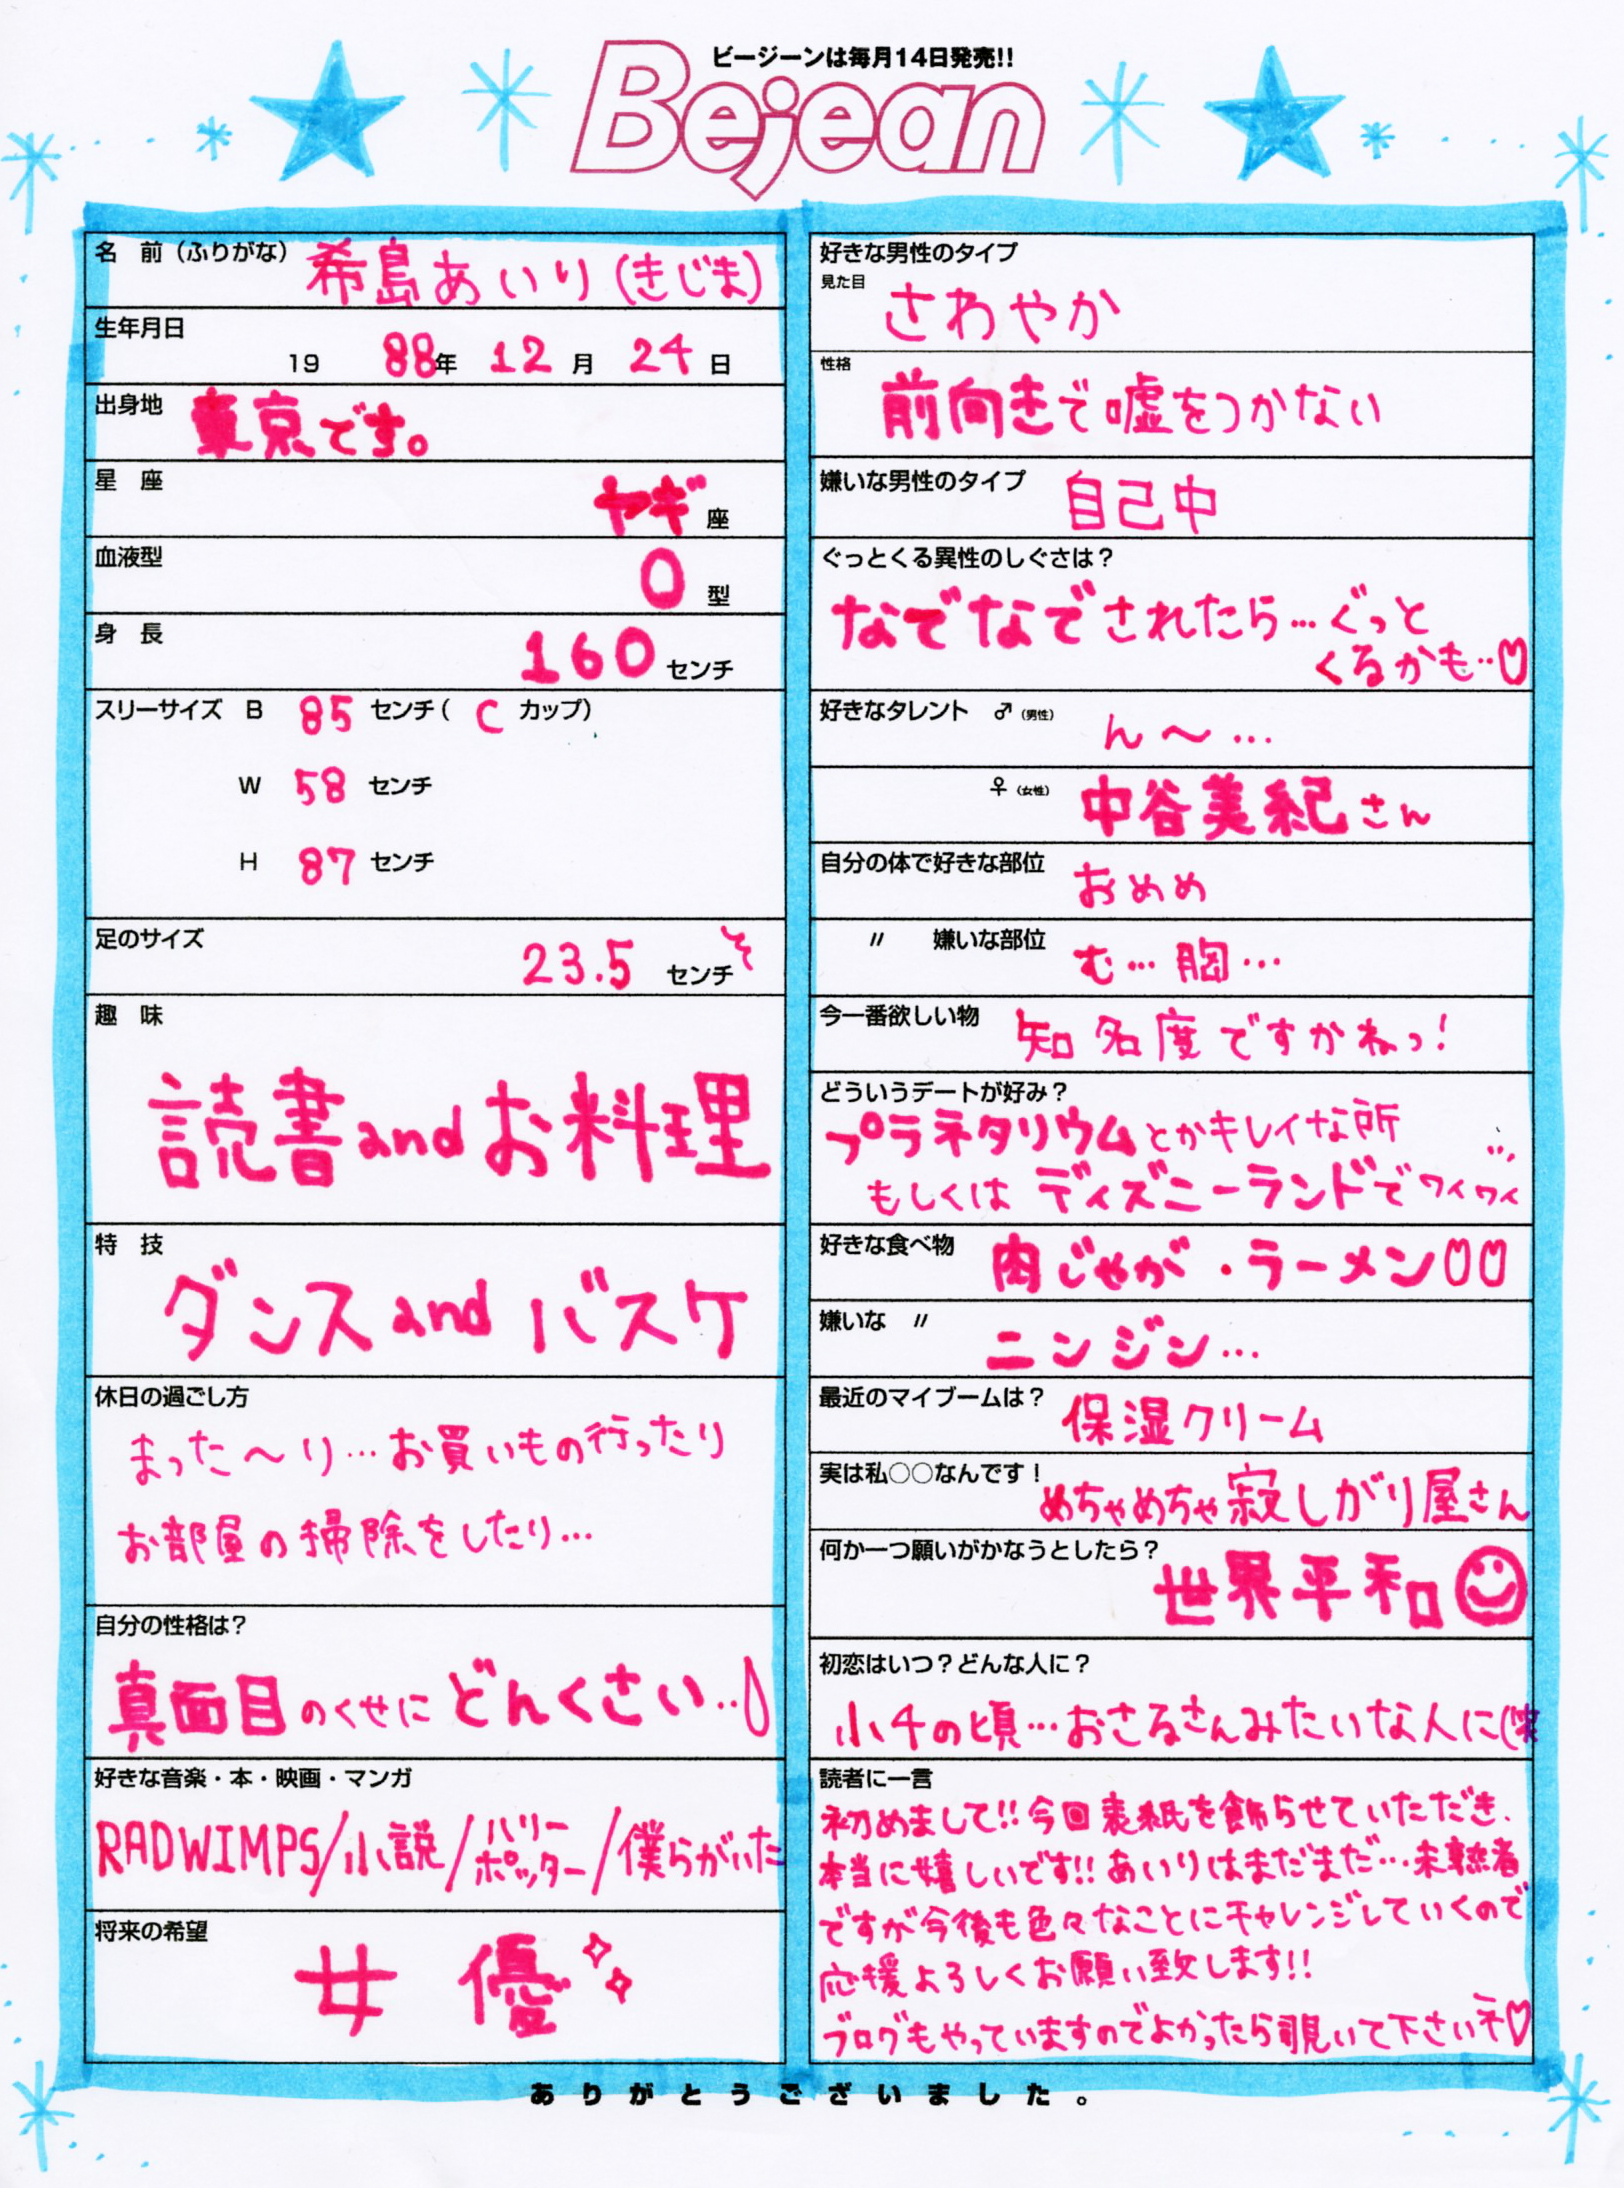 ビージーンは毎月14日発売!!
Bejean
名 前(ふりがな) 希島あいり(きじま)
生年月日
19 88年 12月 24日
出身地 東京です。
星 座 ヤギ座
血液型 O型
身 長 160センチ
スリーサイズ B 85センチ( C カップ)
W 58センチ
H 87センチ
足のサイズ 23.5センチ
趣 味
読書andお料理
特 技
ダンスandバスケ
休日の過ごし方
まった〜り…お買いもの行ったり
お部屋の掃除をしたり…
自分の性格は?
真面目のくせにどんくさい‥
好きな音楽・本・映画・マンガ
RADWIMPS/小説/ハリーポッター/僕らがいた
将来の希望
女優
好きな男性のタイプ
見た目 さわやか
性格 前向きで嘘をつかない
嫌いな男性のタイプ 自己中
ぐっとくる異性のしぐさは?
なでなでされたら…ぐっと
くるかも‥♡
好きなタレント ♂(男性) ん〜…
♀(女性) 中谷美紀さん
自分の体で好きな部位 おめめ
〃 嫌いな部位 む…胸…
今一番欲しい物 知名度ですかねっ!
どういうデートが好み?
プラネタリウムとかキレイな所
もしくはディズニーランドでワイワイ
好きな食べ物 肉じゃが・ラーメン♡♡
嫌いな 〃 ニンジン…
最近のマイブームは? 保湿クリーム
実は私○○なんです! めちゃめちゃ寂しがり屋さん
何か一つ願いがかなうとしたら? 世界平和
初恋はいつ?どんな人に?
小4の頃…おさるさんみたいな人に(笑
読者に一言
初めまして!!今回表紙を飾らせていただき、
本当に嬉しいです!!あいりはまだまだ…未熟者
ですが今後も色々なことにチャレンジしていくので
応援よろしくお願い致します!!
ブログもやっていますのでよかったら覗いて下さいネ♡
ありがとうございました。